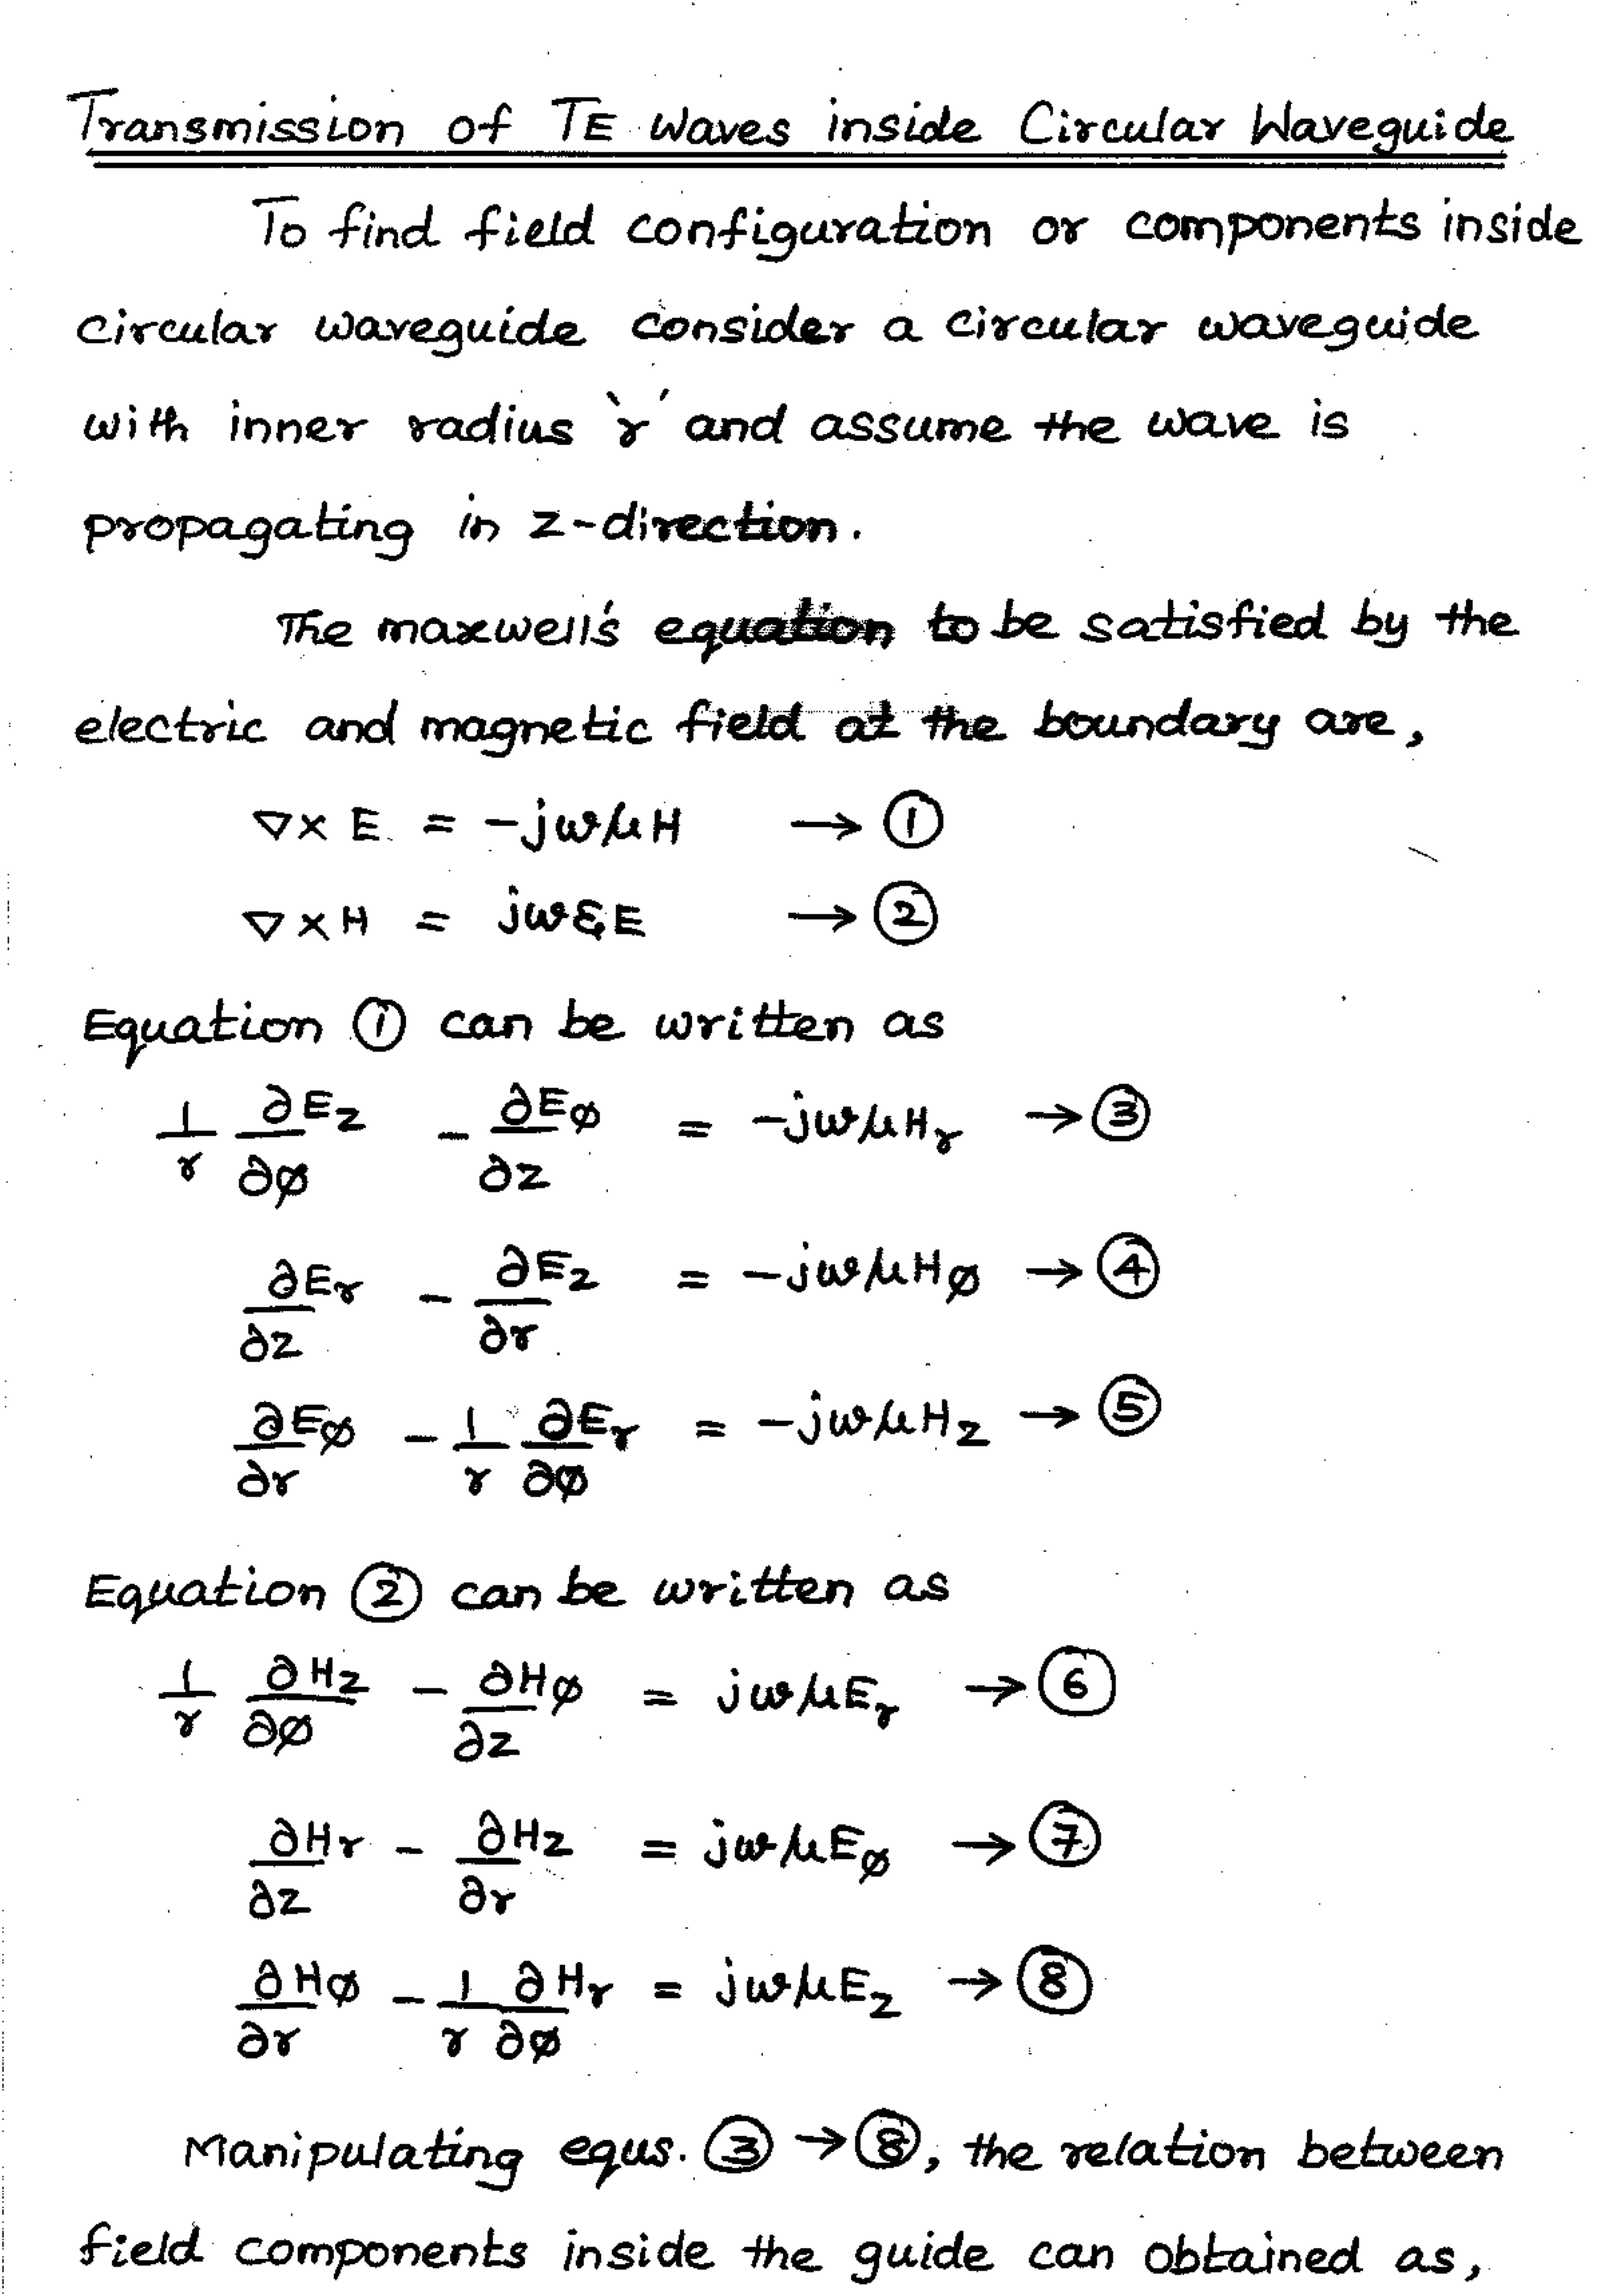 Transmission of TE waves inside Circular Waveguide
To find field configuration or components inside
circular waveguide consider a circular waveguide
with inner radius `r´ and assume the wave is
propagating in z-direction.
The maxwell's equation to be satisfied by the
electric and magnetic field at the boundary are,
∇× E = -jωμH → ①
∇×H = jωεE → ②
Equation ① can be written as
1/r ∂Ez/∂φ - ∂Eφ/∂z = -jωμHr → ③
∂Er/∂z - ∂Ez/∂r = -jωμHφ → ④
∂Eφ/∂r - 1/r ∂Er/∂φ = -jωμHz → ⑤
Equation ② can be written as
1/r ∂Hz/∂φ - ∂Hφ/∂z = jωμEr → ⑥
∂Hr/∂z - ∂Hz/∂r = jωμEφ → ⑦
∂Hφ/∂r - 1/r ∂Hr/∂φ = jωμEz → ⑧
Manipulating equs. ③ → ⑧, the relation between
field components inside the guide can obtained as,